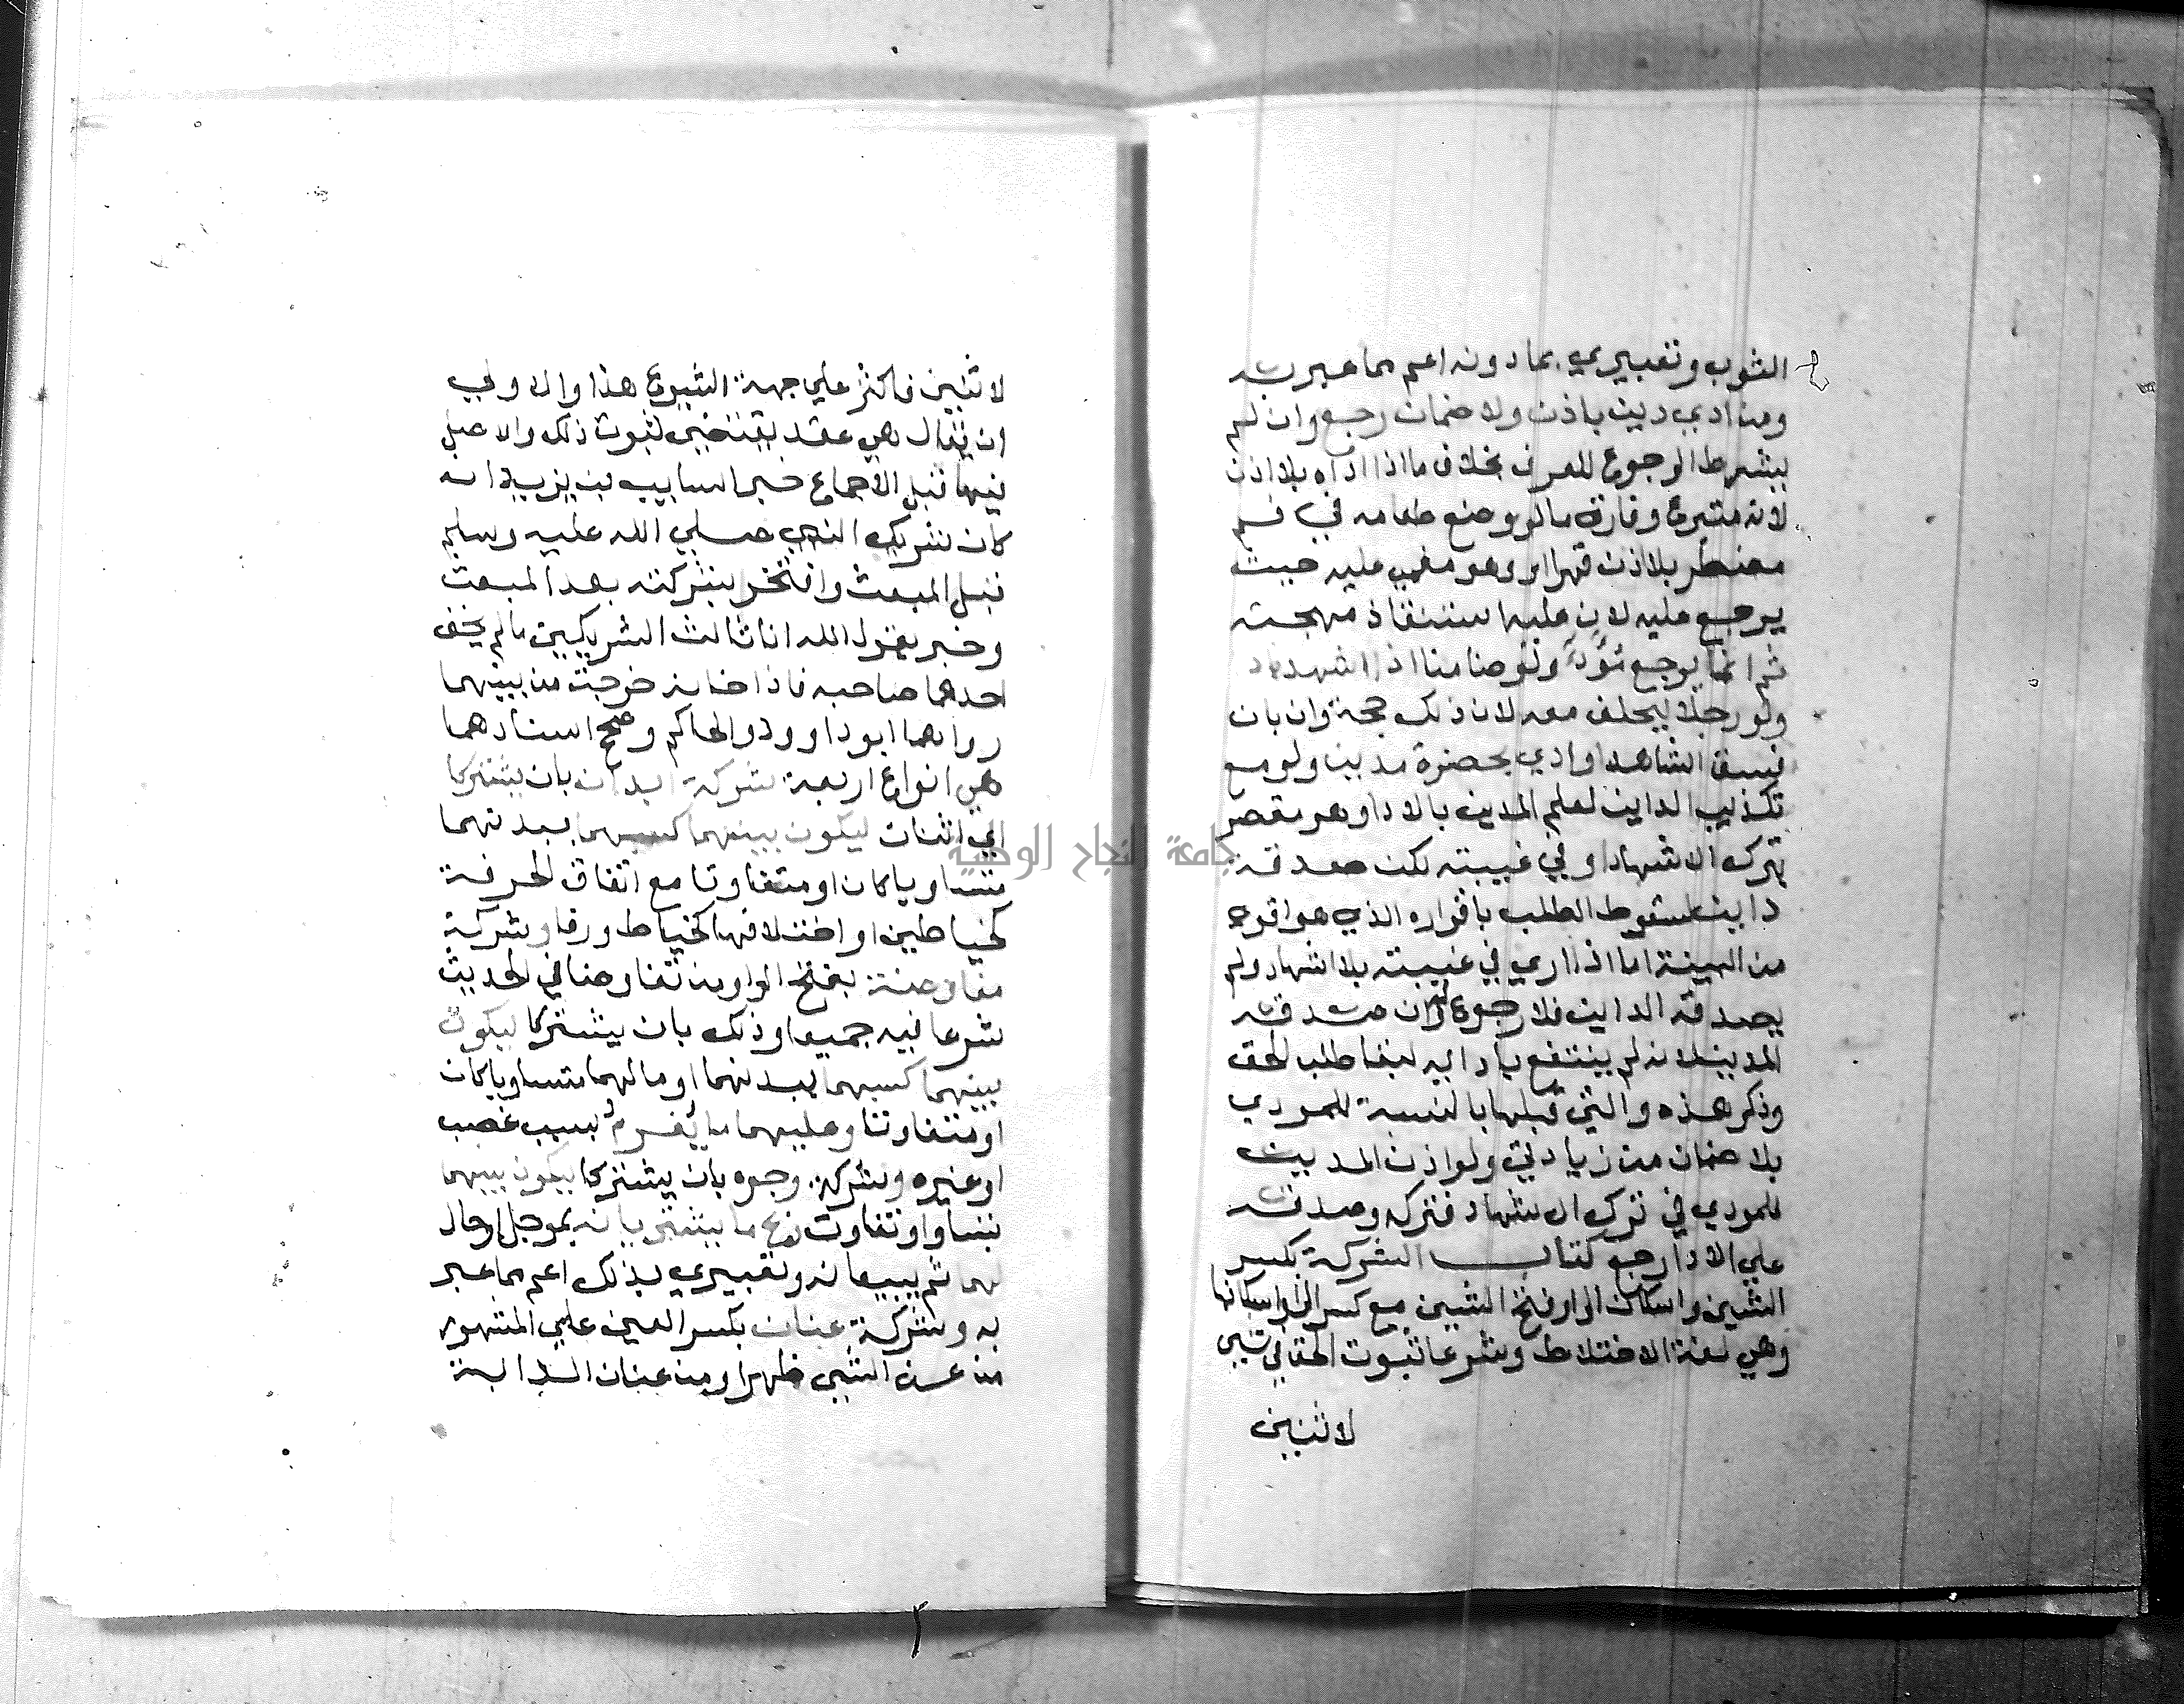 الثوب وتعبيري بما دونه اعم مما عبر به
ومن ادي دين باذن ولا ضمان رجع وان لم
يشرط الرجوع للعرف بخلاف ما اذا اداه بلا اذن
لانه متبرع وفارق ما لو وضع طعامه في فم
مضطر بلا اذن قهرا او وهو مغمي عليه حيث
يرجع عليه لان عليه استنقاذ مهجته
ثم انما يرجع مؤد ولو ضامنا اذا اشهد
ولو رجلا ليحلف معه لان ذلك حجة وان بان
فسق الشاهد او ادي بحضرة مدين ولو مع
تكذيب الداين لعلم المدين بالادا وهو مقصر
بترك الاشهاد او في غيبته لكن صدقه
داين لسقوط الطلب باقراره الذي هو اقوي
من البينة اما اذا ادي في غيبته بلا اشهاد ولم
يصدقه الداين فلا رجوع له وان صدقه
المدين لانه لم ينتفع بادايه لبقا طلب الحق
وذكر هذه والتي قبلها بالنسبة للمودي
بلا ضمان من زيادتي ولو اذن المدين
للمودي في ترك الاشهاد فتركه وصدقه
علي الادا رجع كتاب الشركة بكسر
الشين واسكان الرا وفتح الشين مع كسر الرا واسكانها
وهي لغة الاختلاط وشرعا ثبوت الحق في شيي
لاثنين
لاثنين فاكثر علي جهة الشيوع هذا والاولي
ان يقال هي عقد يقتضي ثبوت ذلك والاصل
فيها قبل الاجماع خبر السايب بن يزيد انه
كان شريك النبي صلي الله عليه وسلم
قبل المبعث وافتخر بشركته بعد المبعث
وخبر يقول الله انا ثالث الشريكين ما لم يخن
احدهما صاحبه فاذا خانه خرجت من بينهما
رواهما ابو داوود والحاكم وصحح اسنادهما
هي انواع اربعة شركة ابدان بان يشتركا
اي اثنان ليكون بينهما كسبهما ببدنهما
متساويا كان او متفاوتا مع اتفاق الحرفة
كخياطين او اختلافها كخياط ورفا وشركة
مفاوضة بفتح الواو من تفاوضا في الحديث
شرعا فيه جميعا وذلك بان يشتركا ليكون
بينهما كسبهما ببدنهما او مالهما متساويا كان
او متفاوتا وعليهما ما يغرم بسبب غصب
او غيره وشركة وجوه بان يشتركا ليكون بينهما
بتساو او تفاوت ربح ما يشتريانه بموجل او حال
لهما ثم يبيعانه وتعبيري بذلك اعم مما عبر
به وشركة عنان بكسر العين علي المشهور
من عن الشيي ظهر او من عنان الدابة
جامعة النجاح الوطنية